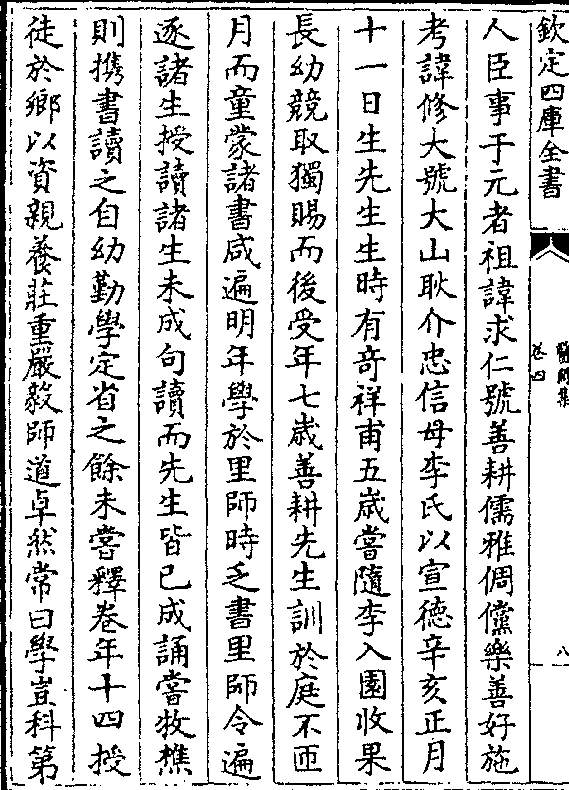 欽定四庫全書
醫閭集
卷四
八
人臣事于元者祖諱求仁號善耕儒雅倜儻樂善好施
考諱修大號大山耿介忠信母李氏以宣德辛亥正月
十一日生先生生時有奇祥甫五歲嘗隨李入園收果
長幼競取獨賜而後受年七歲善耕先生訓於庭不匝
月而童蒙諸書咸遍明年學於里師時乏書里師令遍
逐諸生授讀諸生未成句讀而先生皆已成誦嘗牧樵
則携書讀之自幼勤學定省之餘未嘗釋卷年十四授
徒於鄉以資親養莊重嚴毅師道卓然常曰學豈科第